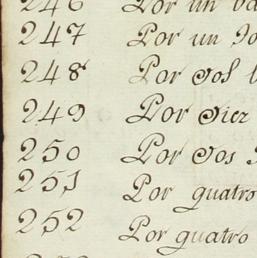 246 Por un
247 Por un
248 Por dos
249 Por diez
250 Por dos
251 Por quatro
252 Por quatro